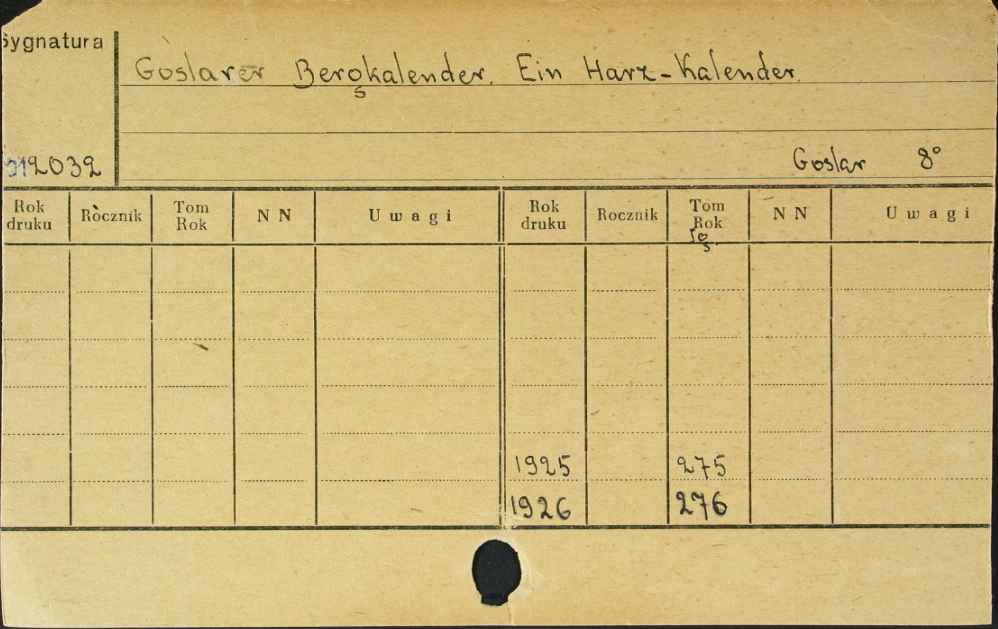 Sygnatura
Goslarer Bergkalender. Ein Harz-Kalender.
312032
Goslar 8°
Rok druku Rocznik Tom Rok NN Uwagi Rok druku Rocznik Tom Rok NN Uwagi
Jg
1925 275
1926 276